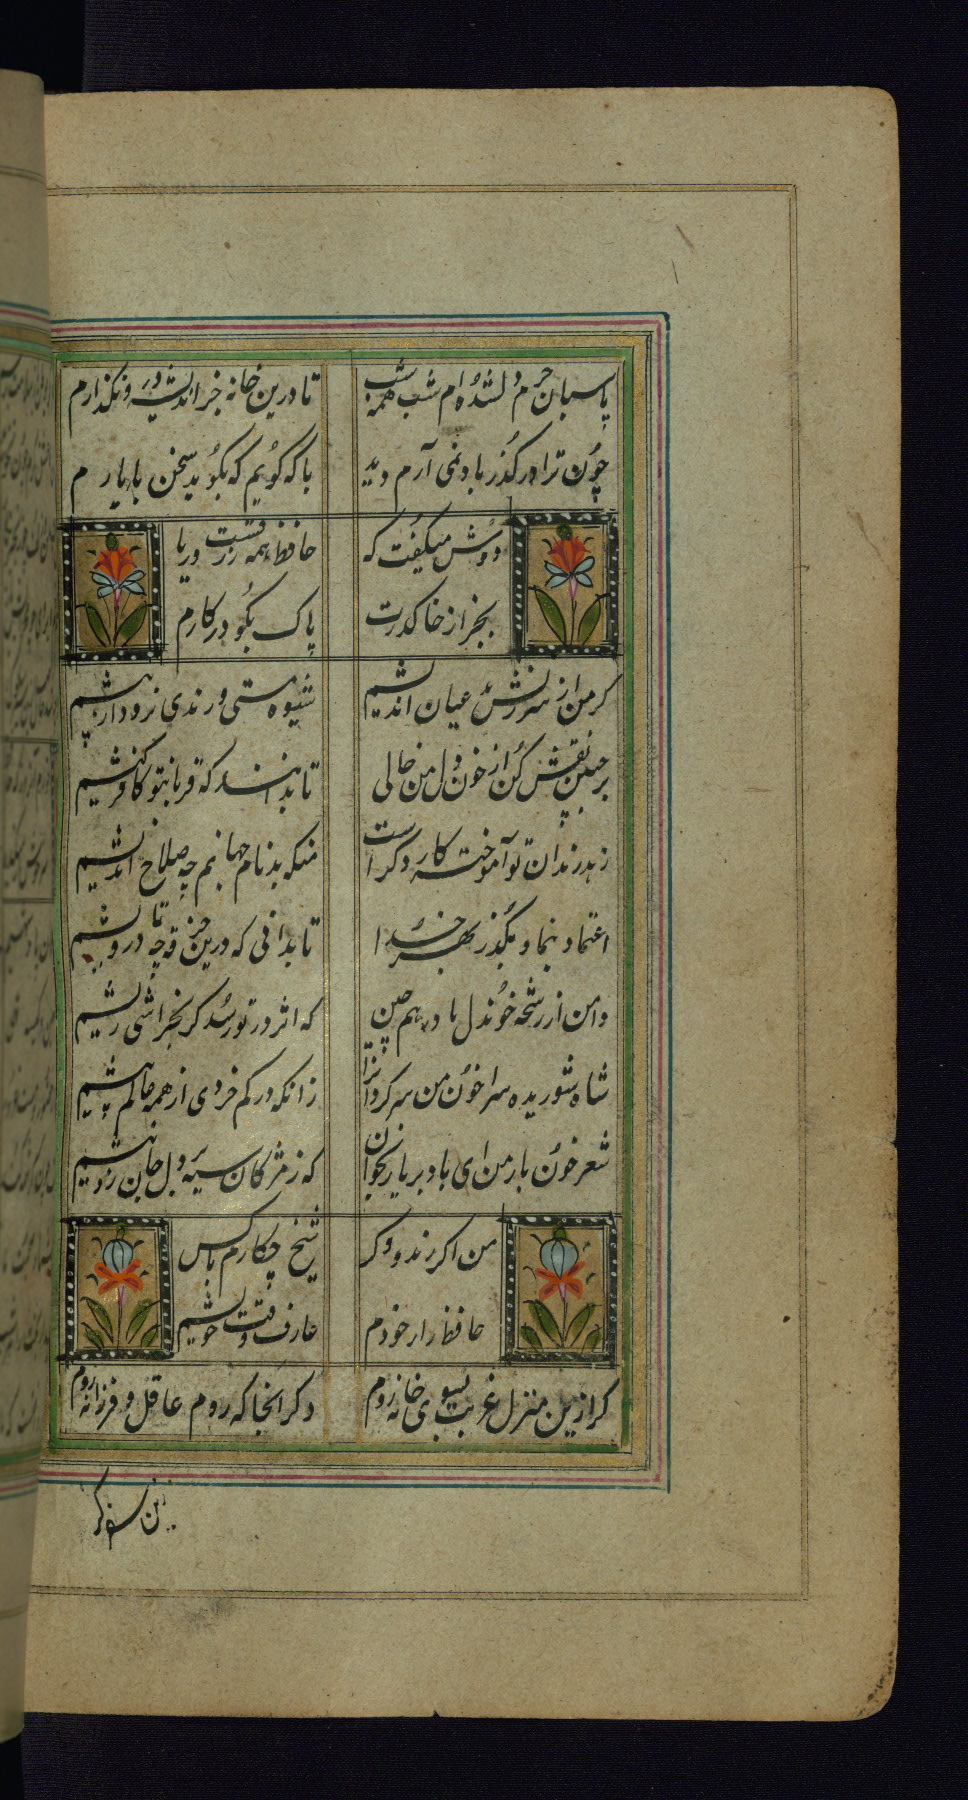 پاسبان حرم دل شده‌ام شب همه شب تا درین خانه جز اندیشهٔ او نگذارم
چون ترا در گذر باد نمی آرم دید با که گویم که بگوید سخن با یارم
دوش میگفت که حافظ همه زرقست و ریا
بجز از خاک درت پاک بگو در کارم
گر من از سرزنش عیان اندیشم شیوه مستی و رندی نرود از پیشم
بر جبین نقش کن از خون دل من خالی تا بدانند که قربان تو کافر کیشم
زهد رندان تو آموخته کار دگر است منکه بدنام جهانم چه صلاح اندیشم
اعتماد بنما و بگذر بهر خدا تا بدانی که درین خرقه چه نادرویشم
دامن از رشحه خون دل ما در هم چین که اثر در تو رسد گر بخراشی ریشم
شاه شوریده سرا خون من زانکه در کم خردی از همه عالم پیشم
شعر خون بار من ای باد بر یار بخوان که ز مژگان سیه بر دل جان زد نیشم
من اگر رندم و گر شیخ چکارم با کس
حافظ راز خودم عارف وقت خویشم
گر ازین منزل غربت بسوی خانه روم دگر آنجا که روم عاقل و فرزانه روم
زین سفر گر